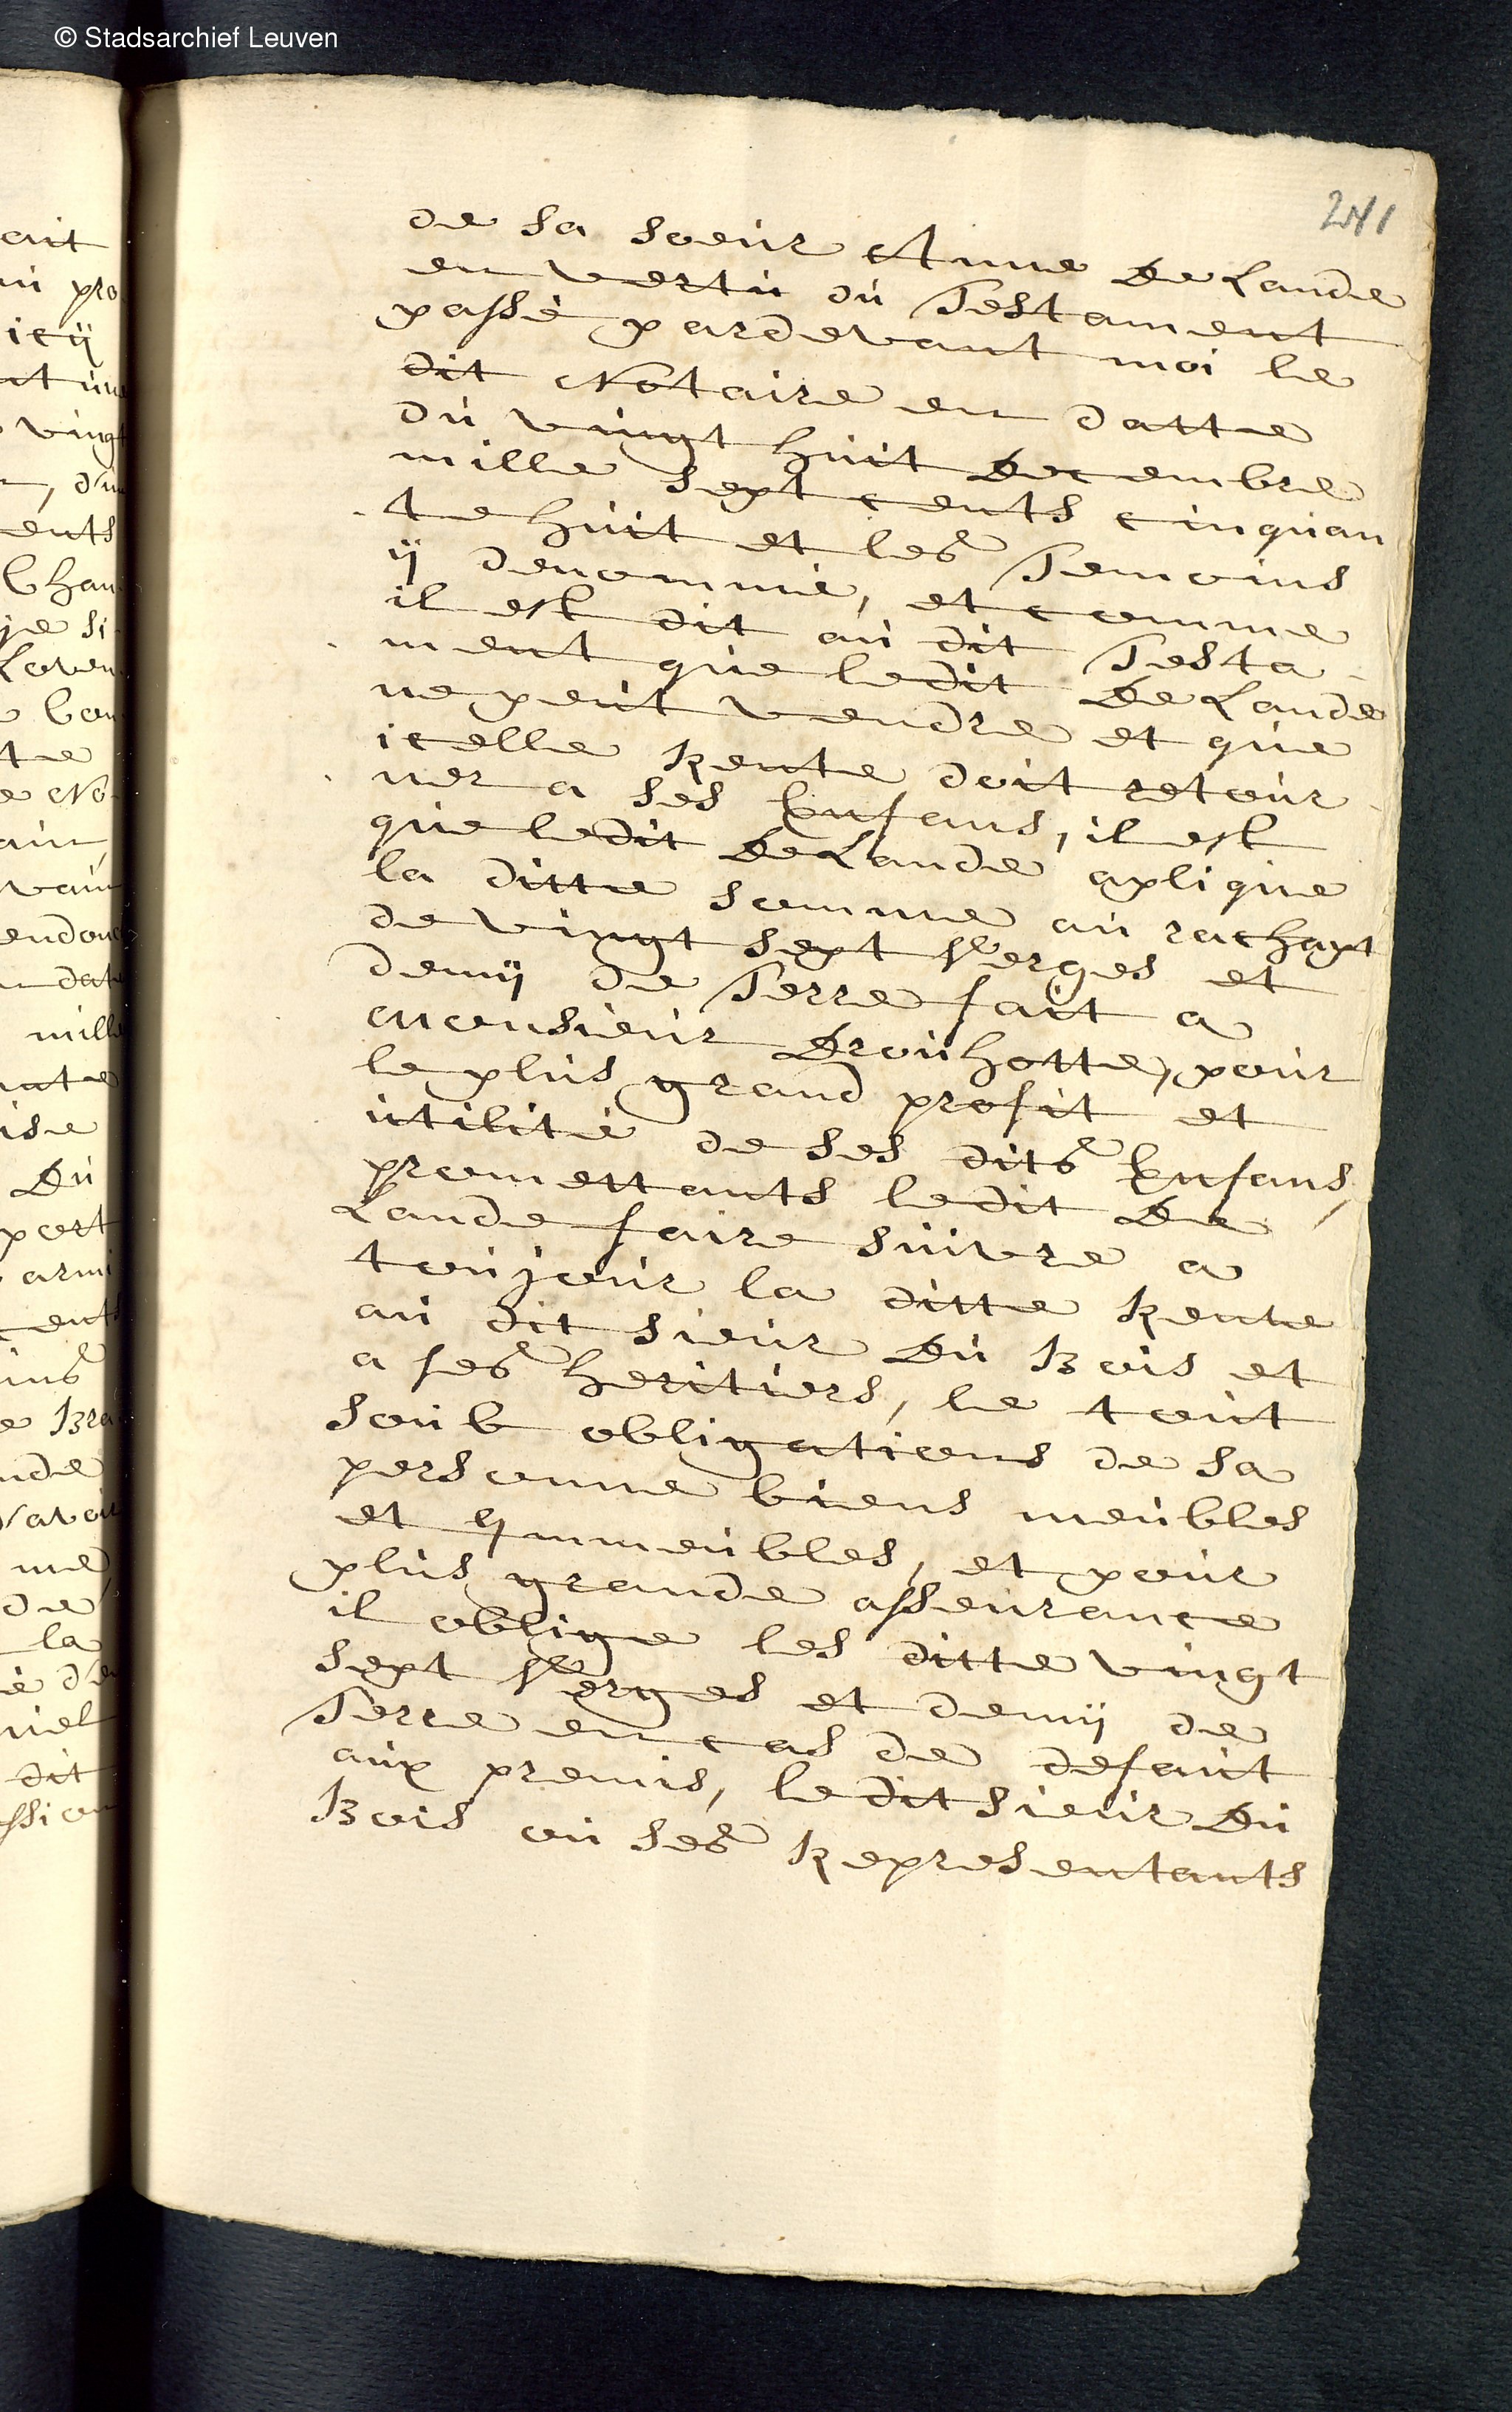 © Stadsarchief Leuven
241
de sa soeur Anne De Lande
en vertu du Testament
passé pardevant moi le
dit Notaire en datte
du vingt huit Decembre
mille sept cents cinquan
te huit et les Temoins
ÿ denommé, et comme
il est dit au dit Testa-
ment que ledit De Lande
ne peut vendre et que
icelle Rente doit retour-
ner a ses Enfans, il est
que ledit De Lande aplique
la ditte somme au rachapt
de vingt sept Verges et
demÿ de Terre fait a
Monsieur Drouhotte, pour
le plus grand profit et
utilité de ses dits Enfans,
promettants ledit De
Lande faire suivre a
toujour la ditte Rente
au dit sieur Du Bois et
a ses heritiers, le tout
soub obligations de sa
personne biens meubles
et Immeubles, et pour
plus grande asseurance
il oblige les ditte vingt
sept Verges et demÿ de
Terre en cas de defaut
aux premis, ledit sieur Du
Bois ou ses Representants